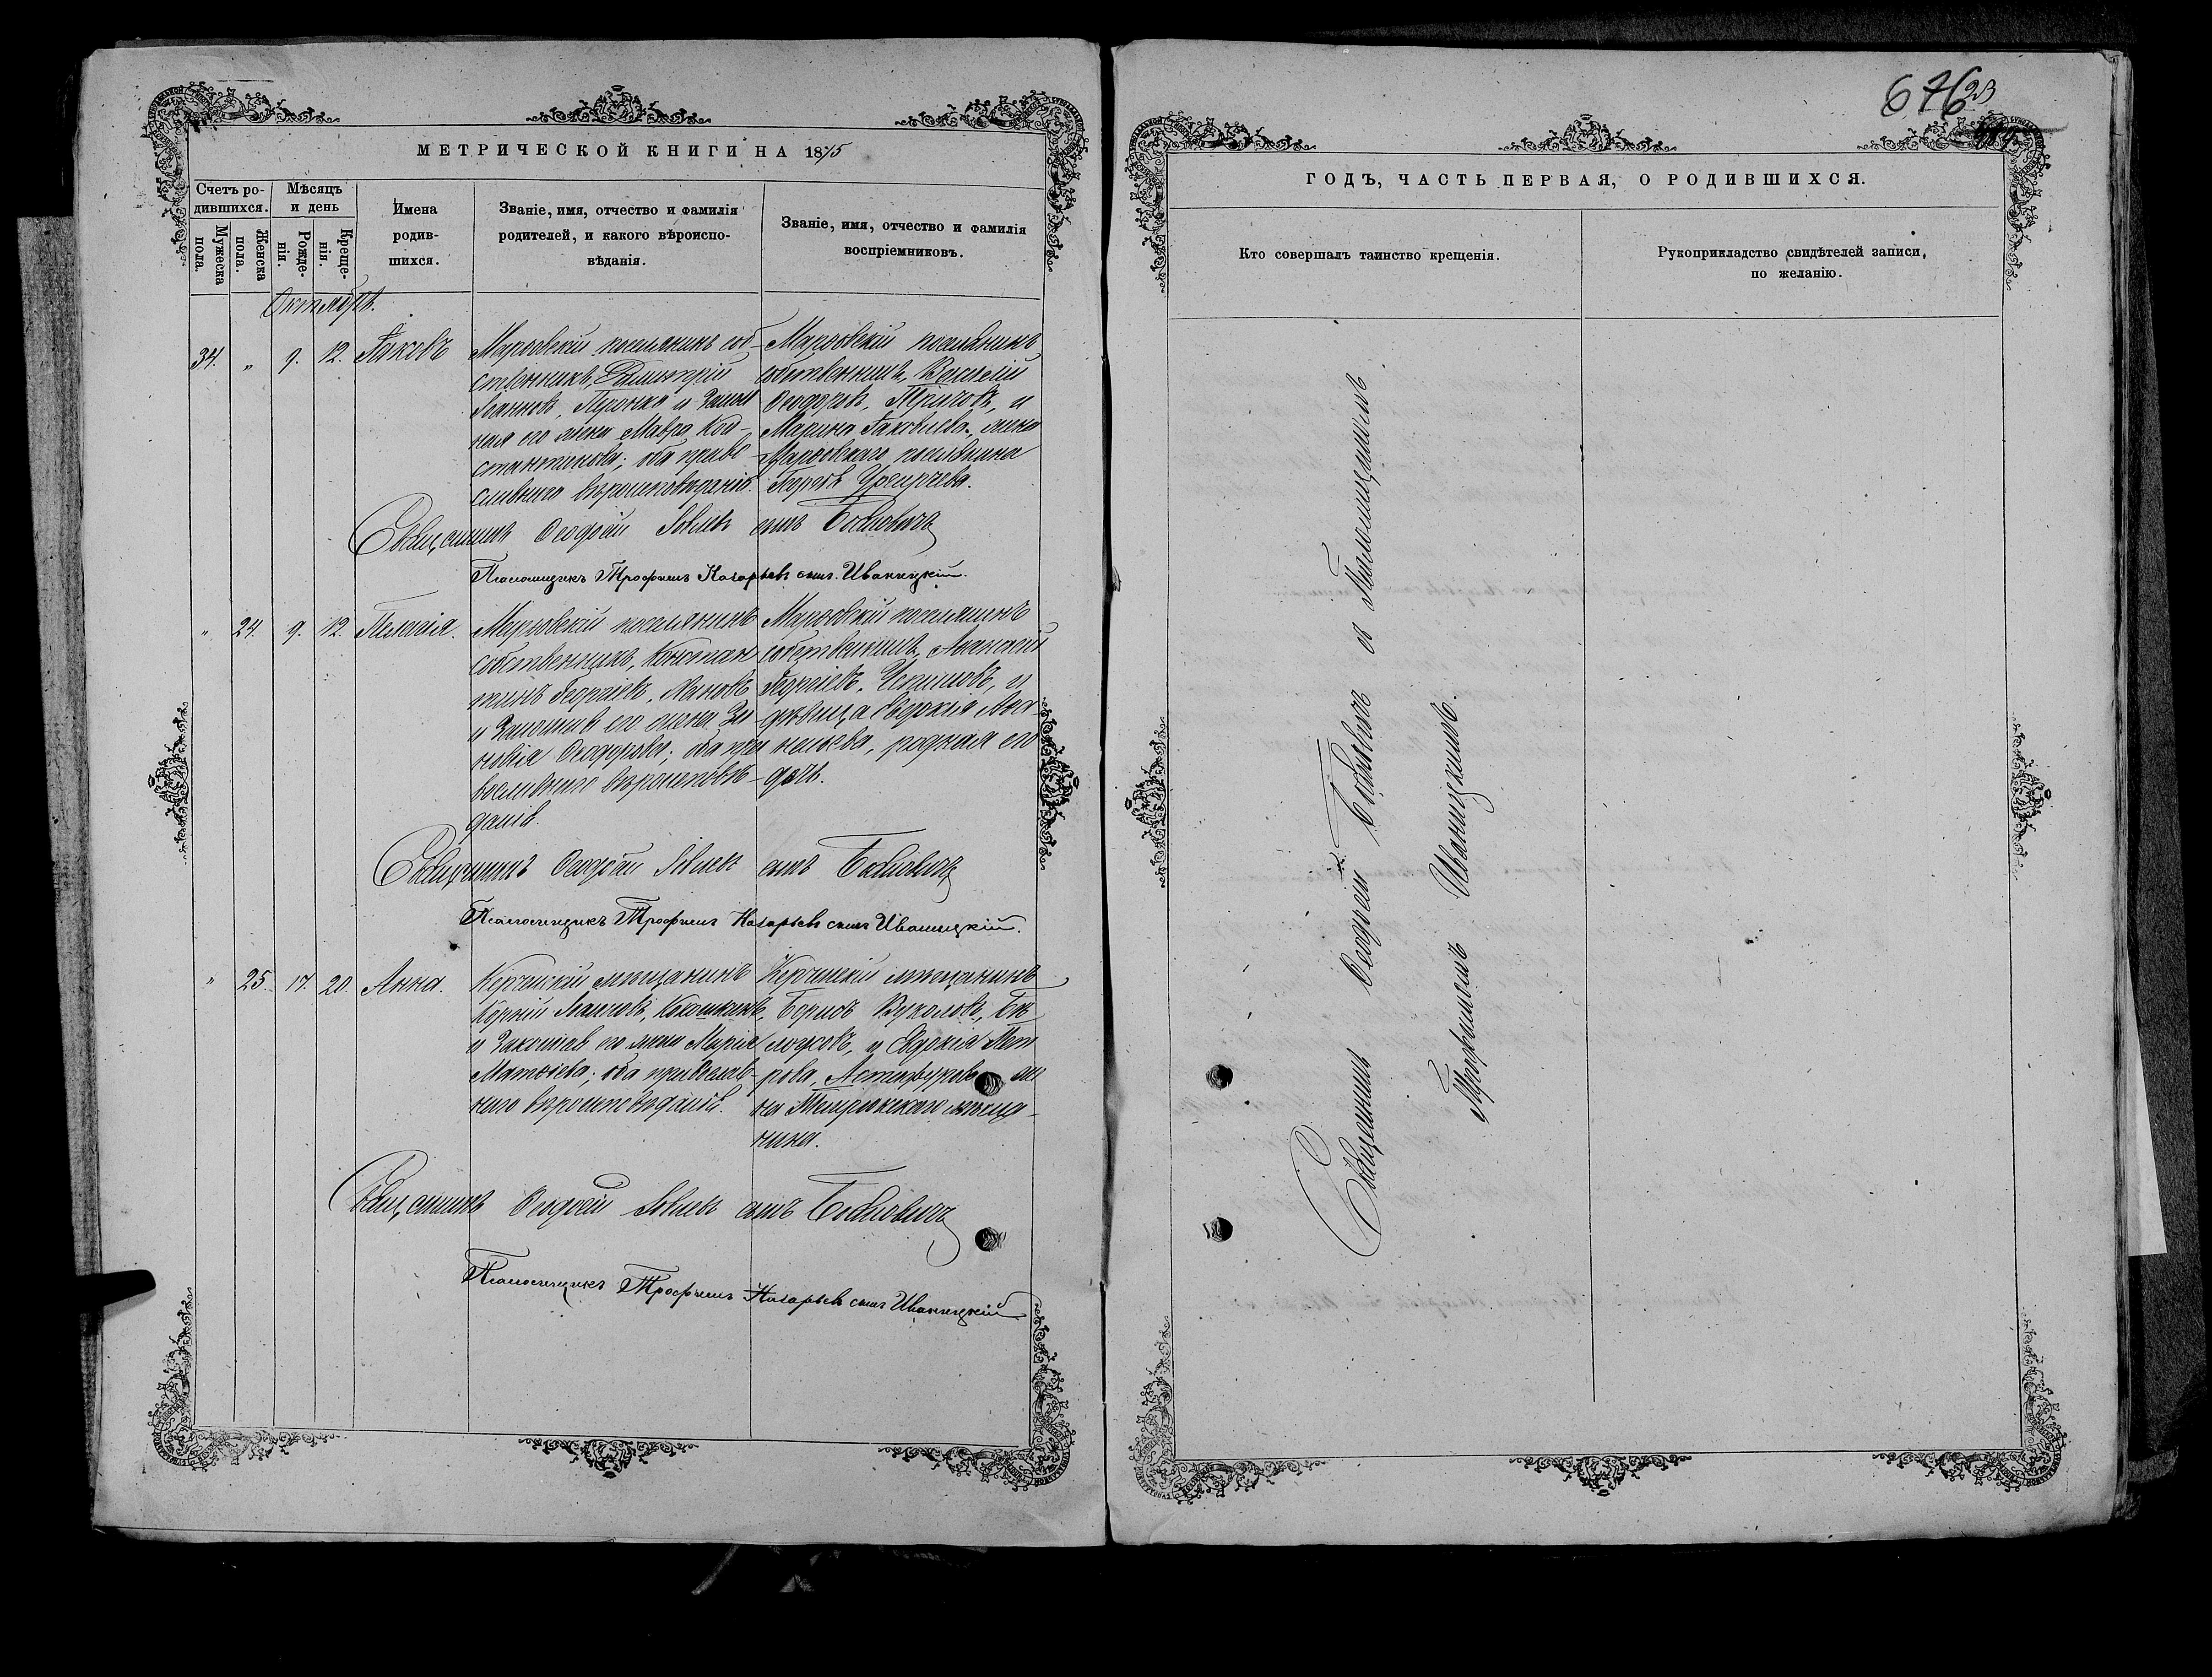 МЕТРИЧЕСКОЙ КНИГИ НА 1875
Счетъ ро-
дившихся.
Мѣсяцъ
и день
Мужеска
пола.
Женска
пола.
Рожде-
нія.
Креще-
нія.
Имена
родив-
шихся.
Званіе, имя, отчество и фамилія
родителей, и какого вѣроиспо-
вѣданія.
Званіе, имя, отчество и фамилія
воспріемниковъ.
Октябрь.
34. " 9. 12. Іаковъ
поселянинъ соб-
ственникъ, Димитрій
Іоанновъ, и Закон
ная его жена Мавра Кон-
стантинова; оба право
славнаго вѣроисповѣданія.
поселянинъ
собственникъ, Василій
Ѳеодоровъ, и
Марина Іаковлева, жена
поселянина
Священникъ Ѳеодосій Іовлевъ сынъ
Псаломщикъ Трофимъ Назарьевъ сынъ Иваницкій.
" 24. 9. 12. Пелагія.
поселянинъ
собственникъ, Констан
тинъ Георгіевъ,
и Законная его жена Зи-
новія Ѳеодорова; оба пра
вославнаго вѣроисповѣ-
данія.
поселянинъ
собственникъ, Ананій
Георгіевъ, и
дѣвица Евдокія Ана-
ньева, родная его
дочь.
Священникъ Ѳеодосій Іовлевъ сынъ
Псаломщикъ Трофимъ Назарьевъ сынъ Иваницкій.
" 25. 17. 20. Анна.
Керченскій мѣщанинъ
Іоанновъ, Кокошкинъ,
и Законная его жена Марія
Матѳіева; оба православ-
наго вѣроисповѣданія.
Керченскій мѣщанинъ
Борисъ Вуколовъ,
и Евдокія Пет
рова, же
на Темрюкскаго мѣща-
нина.
Священникъ Ѳеодосій Іовлевъ сынъ
Псаломщикъ Трофимъ Назарьевъ сынъ Иваницкій
676
23
ГОДЪ, ЧАСТЬ ПЕРВАЯ, О РОДИВШИХСЯ.
Кто совершалъ таинство крещенія.
Рукоприкладство свидѣтелей записи,
по желанію.
Священникъ Ѳеодосій съ Псаломщикомъ
Трофимомъ Иваницкимъ.